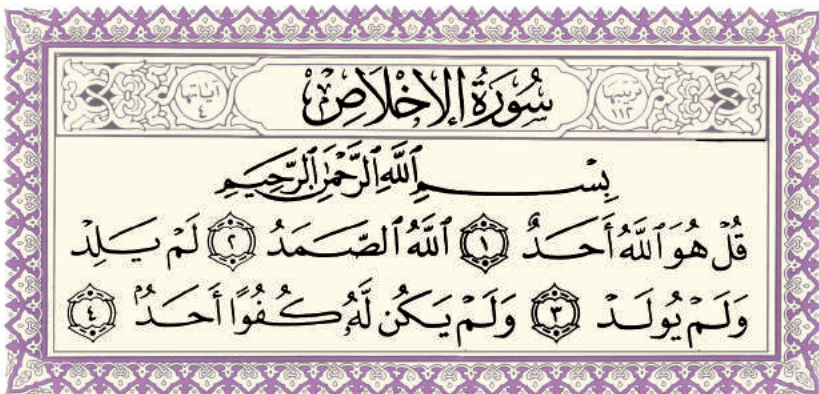 ترتيبها ١١٢
سُورَةُ الإِخْلَاصِ
آياتها ٤
بِسْمِ ٱللَّهِ ٱلرَّحْمَٰنِ ٱلرَّحِيمِ
قُلْ هُوَ ٱللَّهُ أَحَدٌ ١ ٱللَّهُ ٱلصَّمَدُ ٢ لَمْ يَلِدْ
وَلَمْ يُولَدْ ٣ وَلَمْ يَكُن لَّهُۥ كُفُوًا أَحَدٌۢ ٤